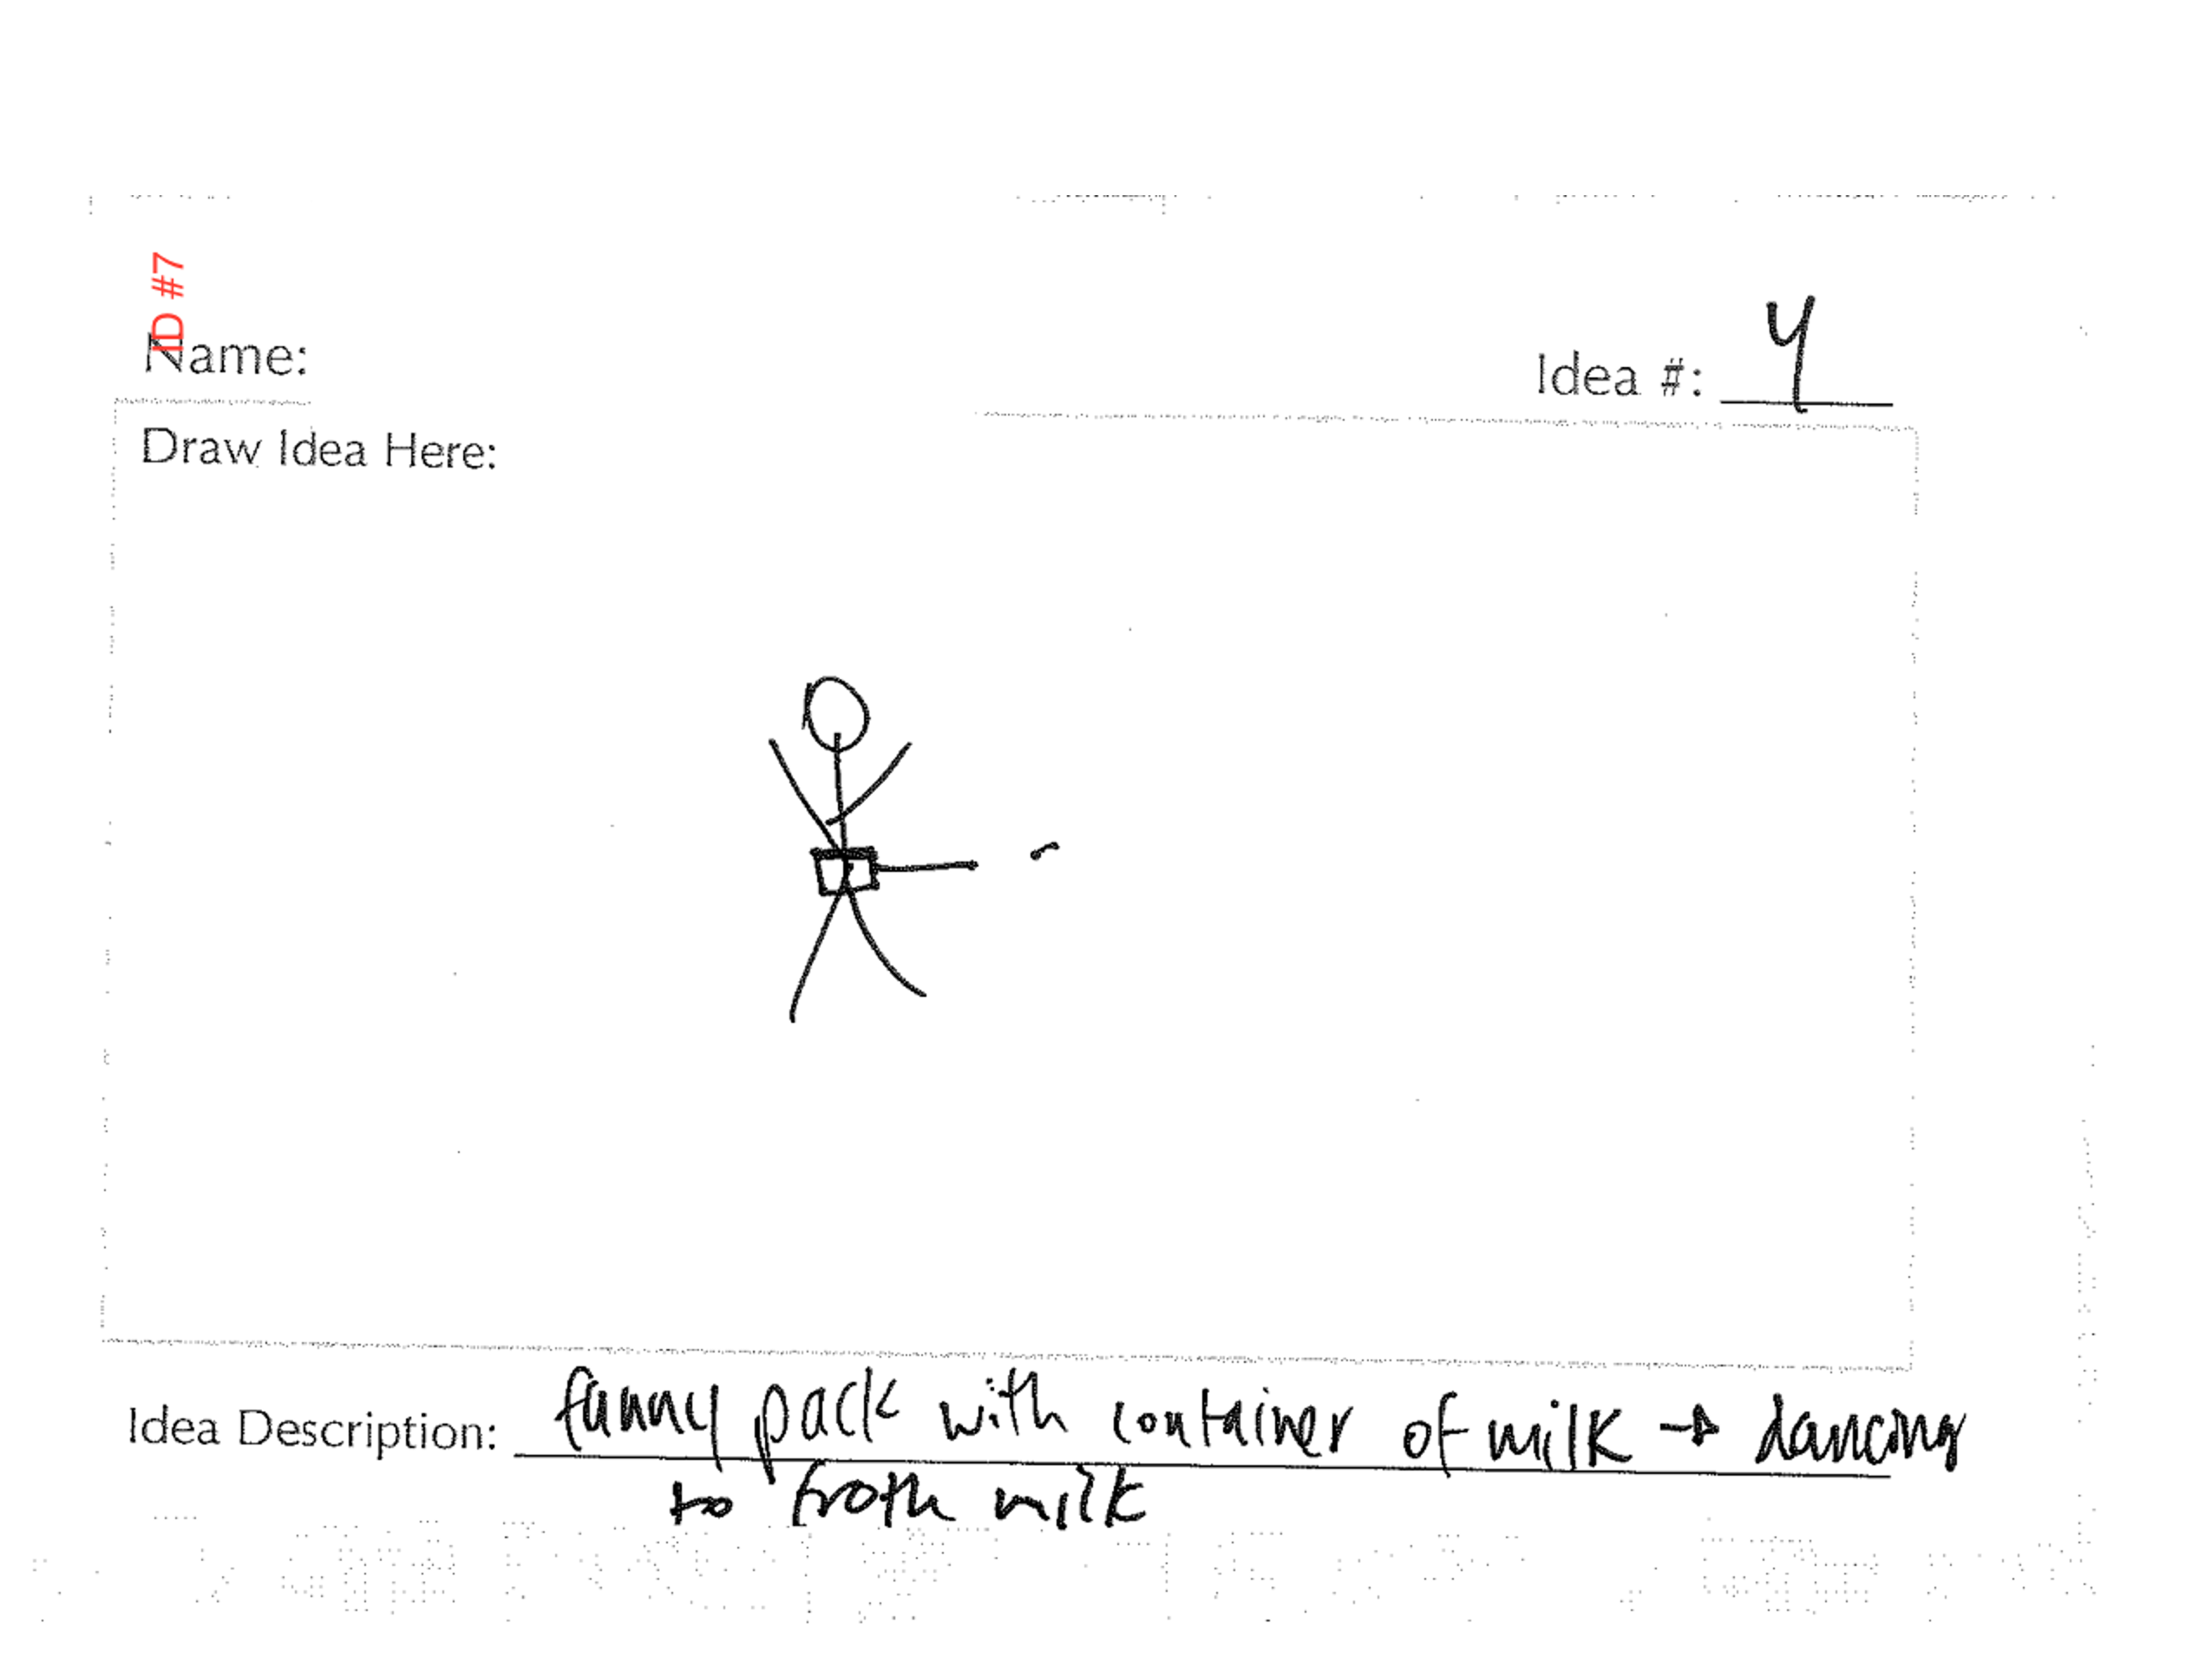 ID #7
Name:
Idea #: 4
Draw Idea Here:
Idea Description: fanny pack with container of milk → dancing
to froth milk